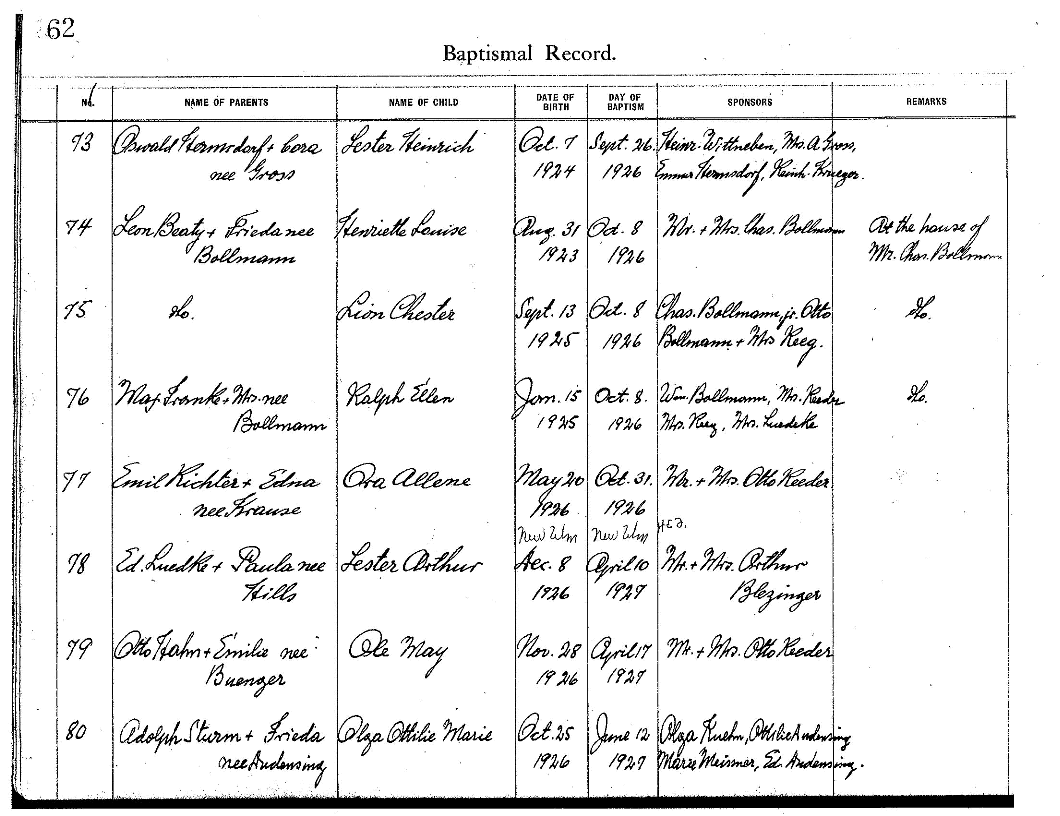 62
Baptismal Record.
No. NAME OF PARENTS NAME OF CHILD DATE OF BIRTH DAY OF BAPTISM SPONSORS REMARKS
73 Oswald Hermsdorf + Cora Lester Heinrich Oct. 7 Sept. 26. Heinr. Wittneben, Mrs. A Gross,
nee Gross 1924 1926 Emma Hermsdorf, Reinh. Krueger.
74 Leon Beaty + Frieda nee Henriette Louise Aug. 31 Oct. 8 Mr. + Mrs. Chas. Bollmann At the house of
Bollmann 1923 1926 Mr. Chas. Bollmann
75 do. Lion Chester Sept. 13 Oct. 8 Chas. Bollmann, jr. Otto do.
1925 1926 Bollmann + Mrs Keeg.
76 Max Franke + Mrs. nee Ralph Ellen Jan. 15 Oct. 8. Wm. Bollmann, Mrs. Reeder do.
Bollmann 1925 1926 Mrs. Keeg, Mrs. Luedeke
77 Emil Richter + Edna Ora Allene May 20 Oct. 31. Mr. + Mrs. Otto Reeder
nee Krause 1926 1926
New Ulm New Ulm
78 Ed. Luedke + Paula nee Lester Arthur Dec. 8 April 10 Mr. + Mrs. Arthur
Hills 1926 1927 Blezinger
79 Otto Hahn + Emilie nee Ole May Nov. 28 April 17 Mr. + Mrs. Otto Reeder
Buenger 1926 1927
80 Adolph Sturm + Frieda Olga Ottilie Marie Oct. 25 June 12 Olga Kuehn, Ottilie Audensing
nee Audensing 1926 1927 Marie Meissner, Ed. Audensing.